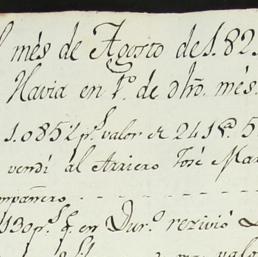 més de Agosto de 1.82
Havia en 1º. de dhõ. més.
1.085 2 pˢ valor de 241 5
vendí al Arriero José Mar
ompañero
130 pˢ f. en Durº. rezivió
valor